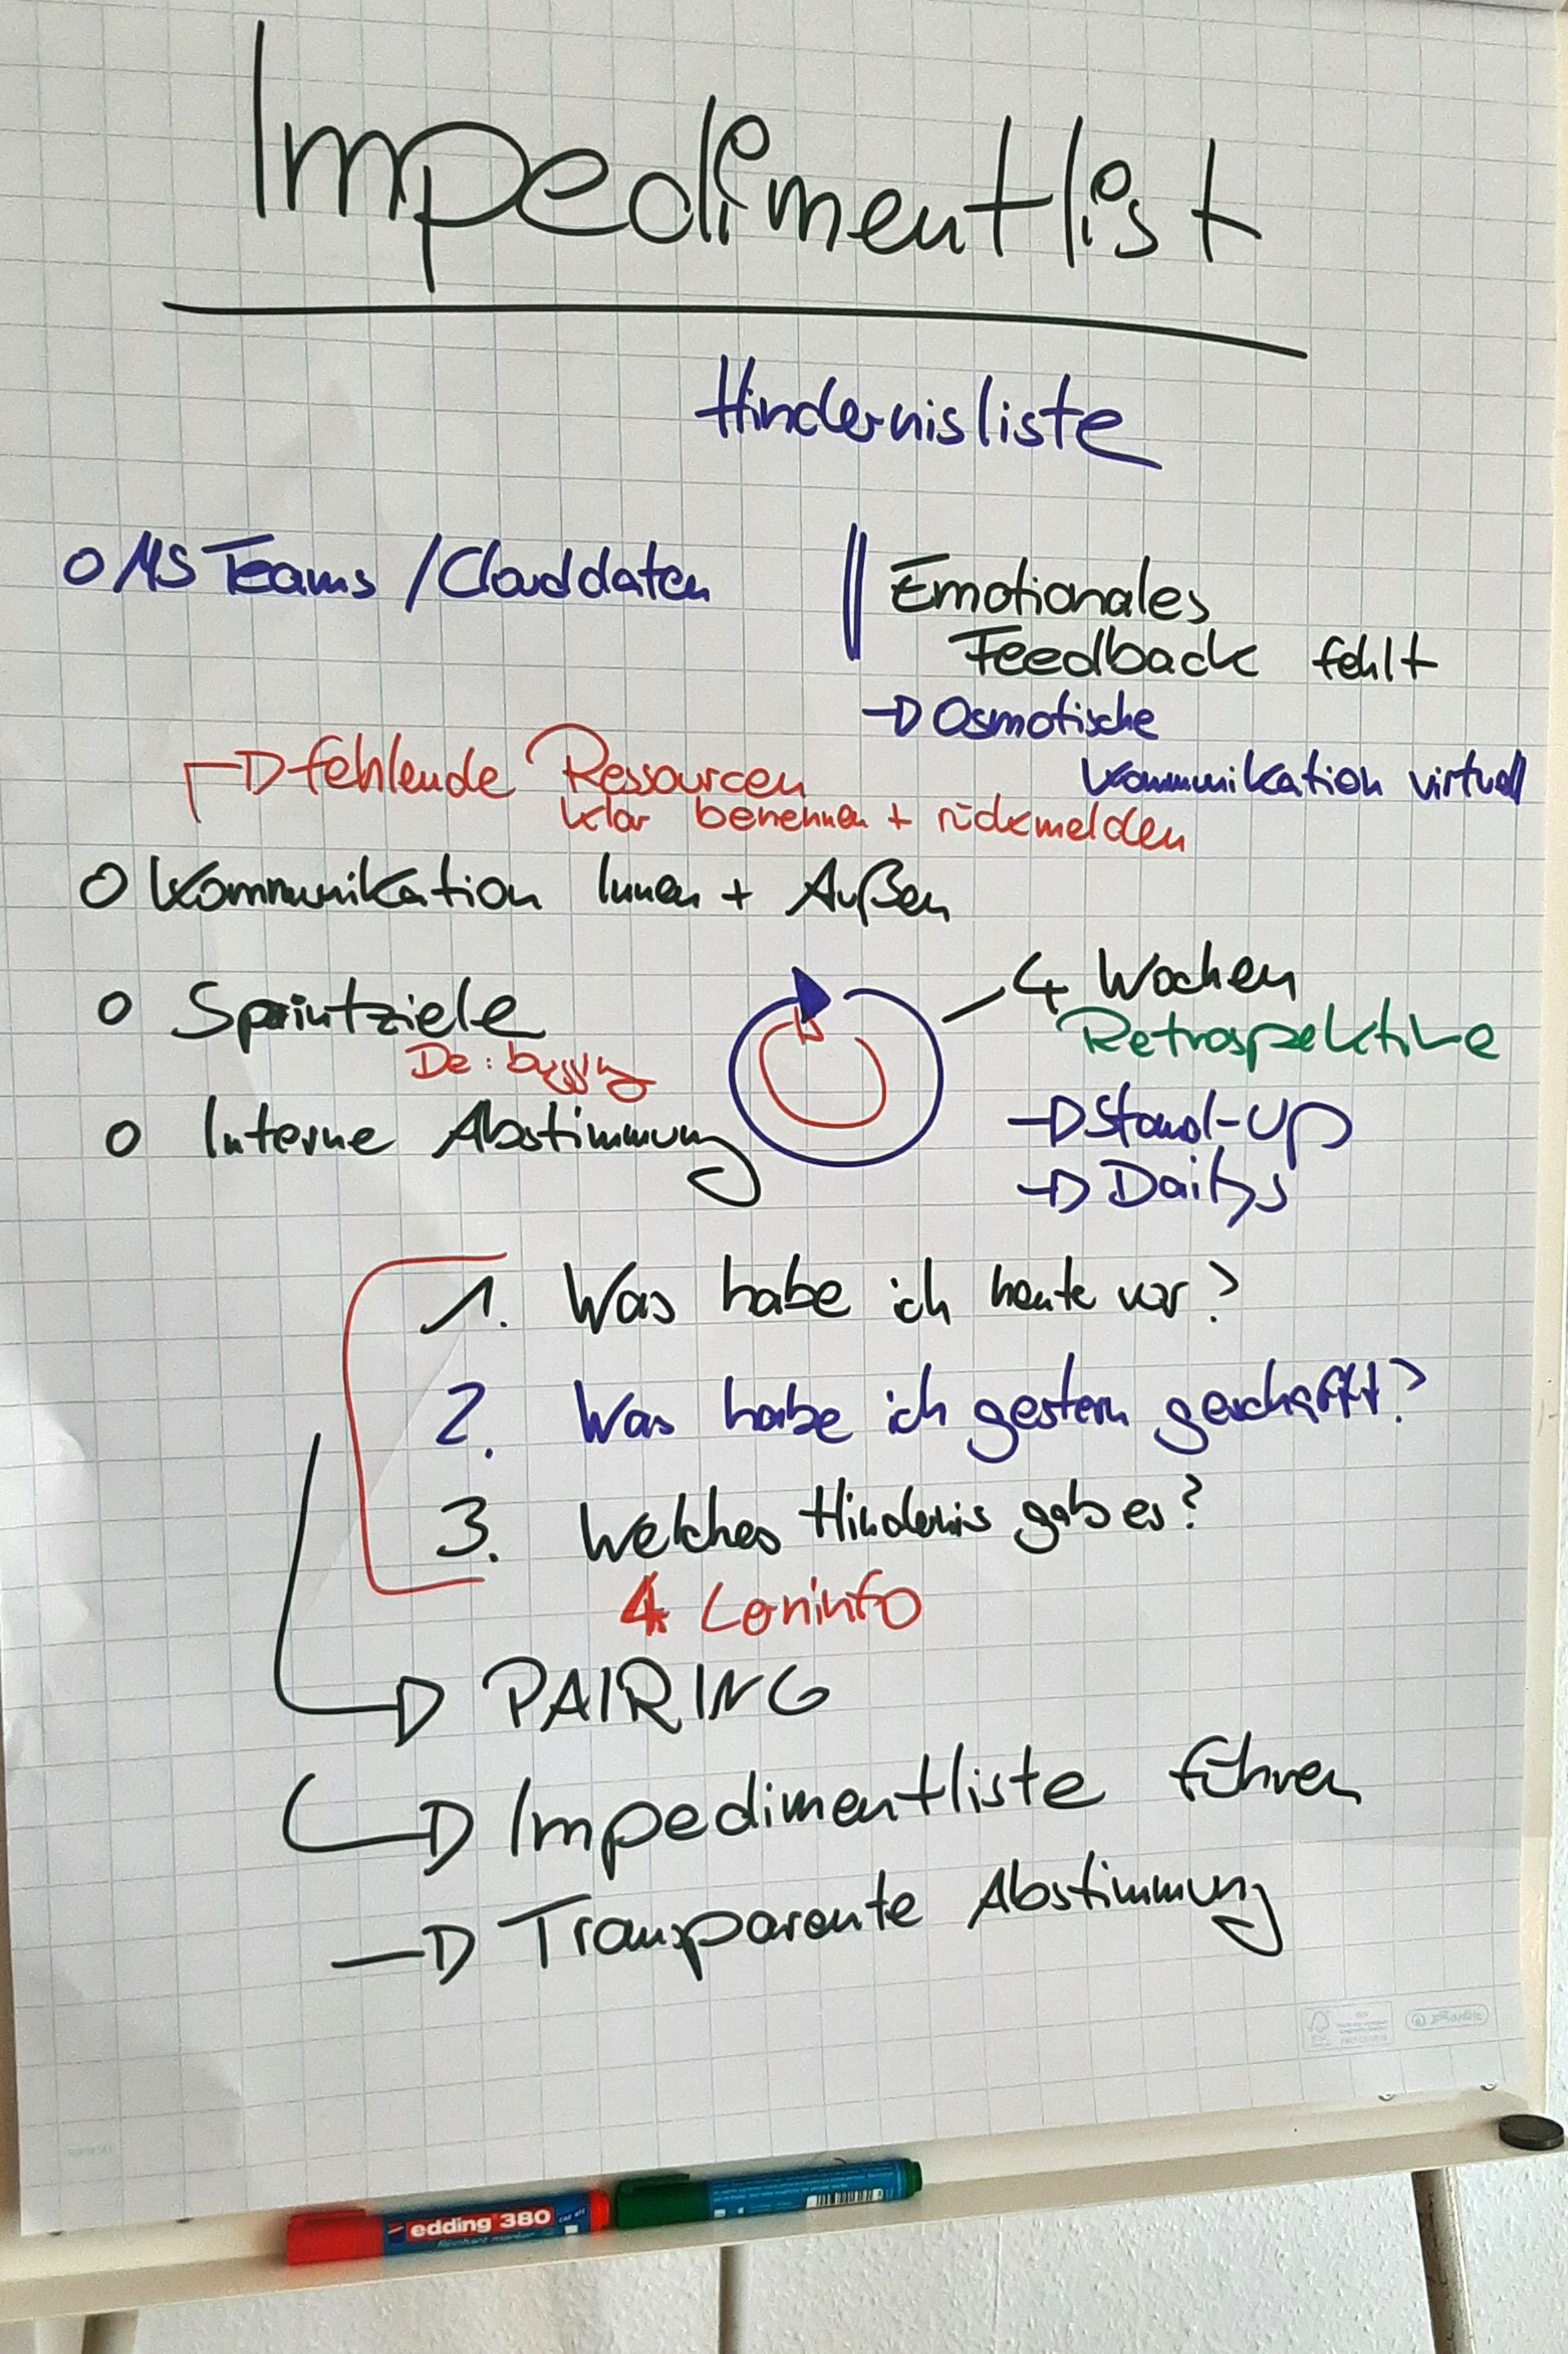 Impedimentlist
Hindernisliste
o MS Teams / Clouddaten
Emotionales
Feedback fehlt
→ Osmotische
Kommunikation virtuell
→ fehlende Ressourcen
klar benennen + rückmelden
o Kommunikation Innen + Außen
o Sprintziele
De:bugging
4 Wochen
Retrospektive
o Interne Abstimmung
→ Stand-Up
→ Dailys
1. Was habe ich heute vor?
2. Was habe ich gestern geschafft?
3. Welches Hindernis gab es?
4. Lerninfo
→ PAIRING
→ Impedimentliste führen
→ Transparente Abstimmung
edding 380